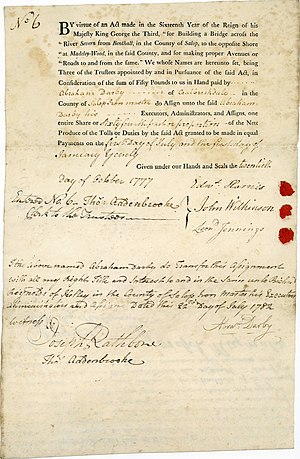 No 6
BY virtue of an Act made in the Sixteenth Year of the Reign of his
Majesty King George the Third, "for Building a Bridge across the
"River Severn from Benthall, in the County of Salop, to the opposite Shore
"at Madeley-Wood, in the said County, and for making proper Avenues or
"Roads to and from the same." We whose Names are hereunto set, being
Three of the Trustees appointed by and in Pursuance of the said Act, in
Consideration of the sum of Fifty Pounds to us in Hand paid by
Abraham Darby of Coalbrookdale in
the County of Salop Iron master do Assign unto the said Abraham
Darby his Executors, Administrators, and Assigns, one
entire Share or Sixty fourth part or proportion of the Net
Produce of the Tolls or Duties by the said Act granted to be made in equal
Payments on the first Day of July and the first Day of
January Yearly
Given under our Hands and Seals the twentieth
Day of October 1777
Edwd. Harries
Entered No. 6 Thos. Addenbrooke
Clerk to the Trustees
John Wilkinson
Leond. Jennings
I the above named Abraham Darby do Transfer this Assignment
with all my Right Title and Interest in and to the Same unto
Reynolds of Ketley in the County of Salop Iron master his Executors
Administrators and Assigns Dated this 22d. Day of July 1782
Witness
Abm. Darby
Joseph Rathbone
Thos. Addenbrooke